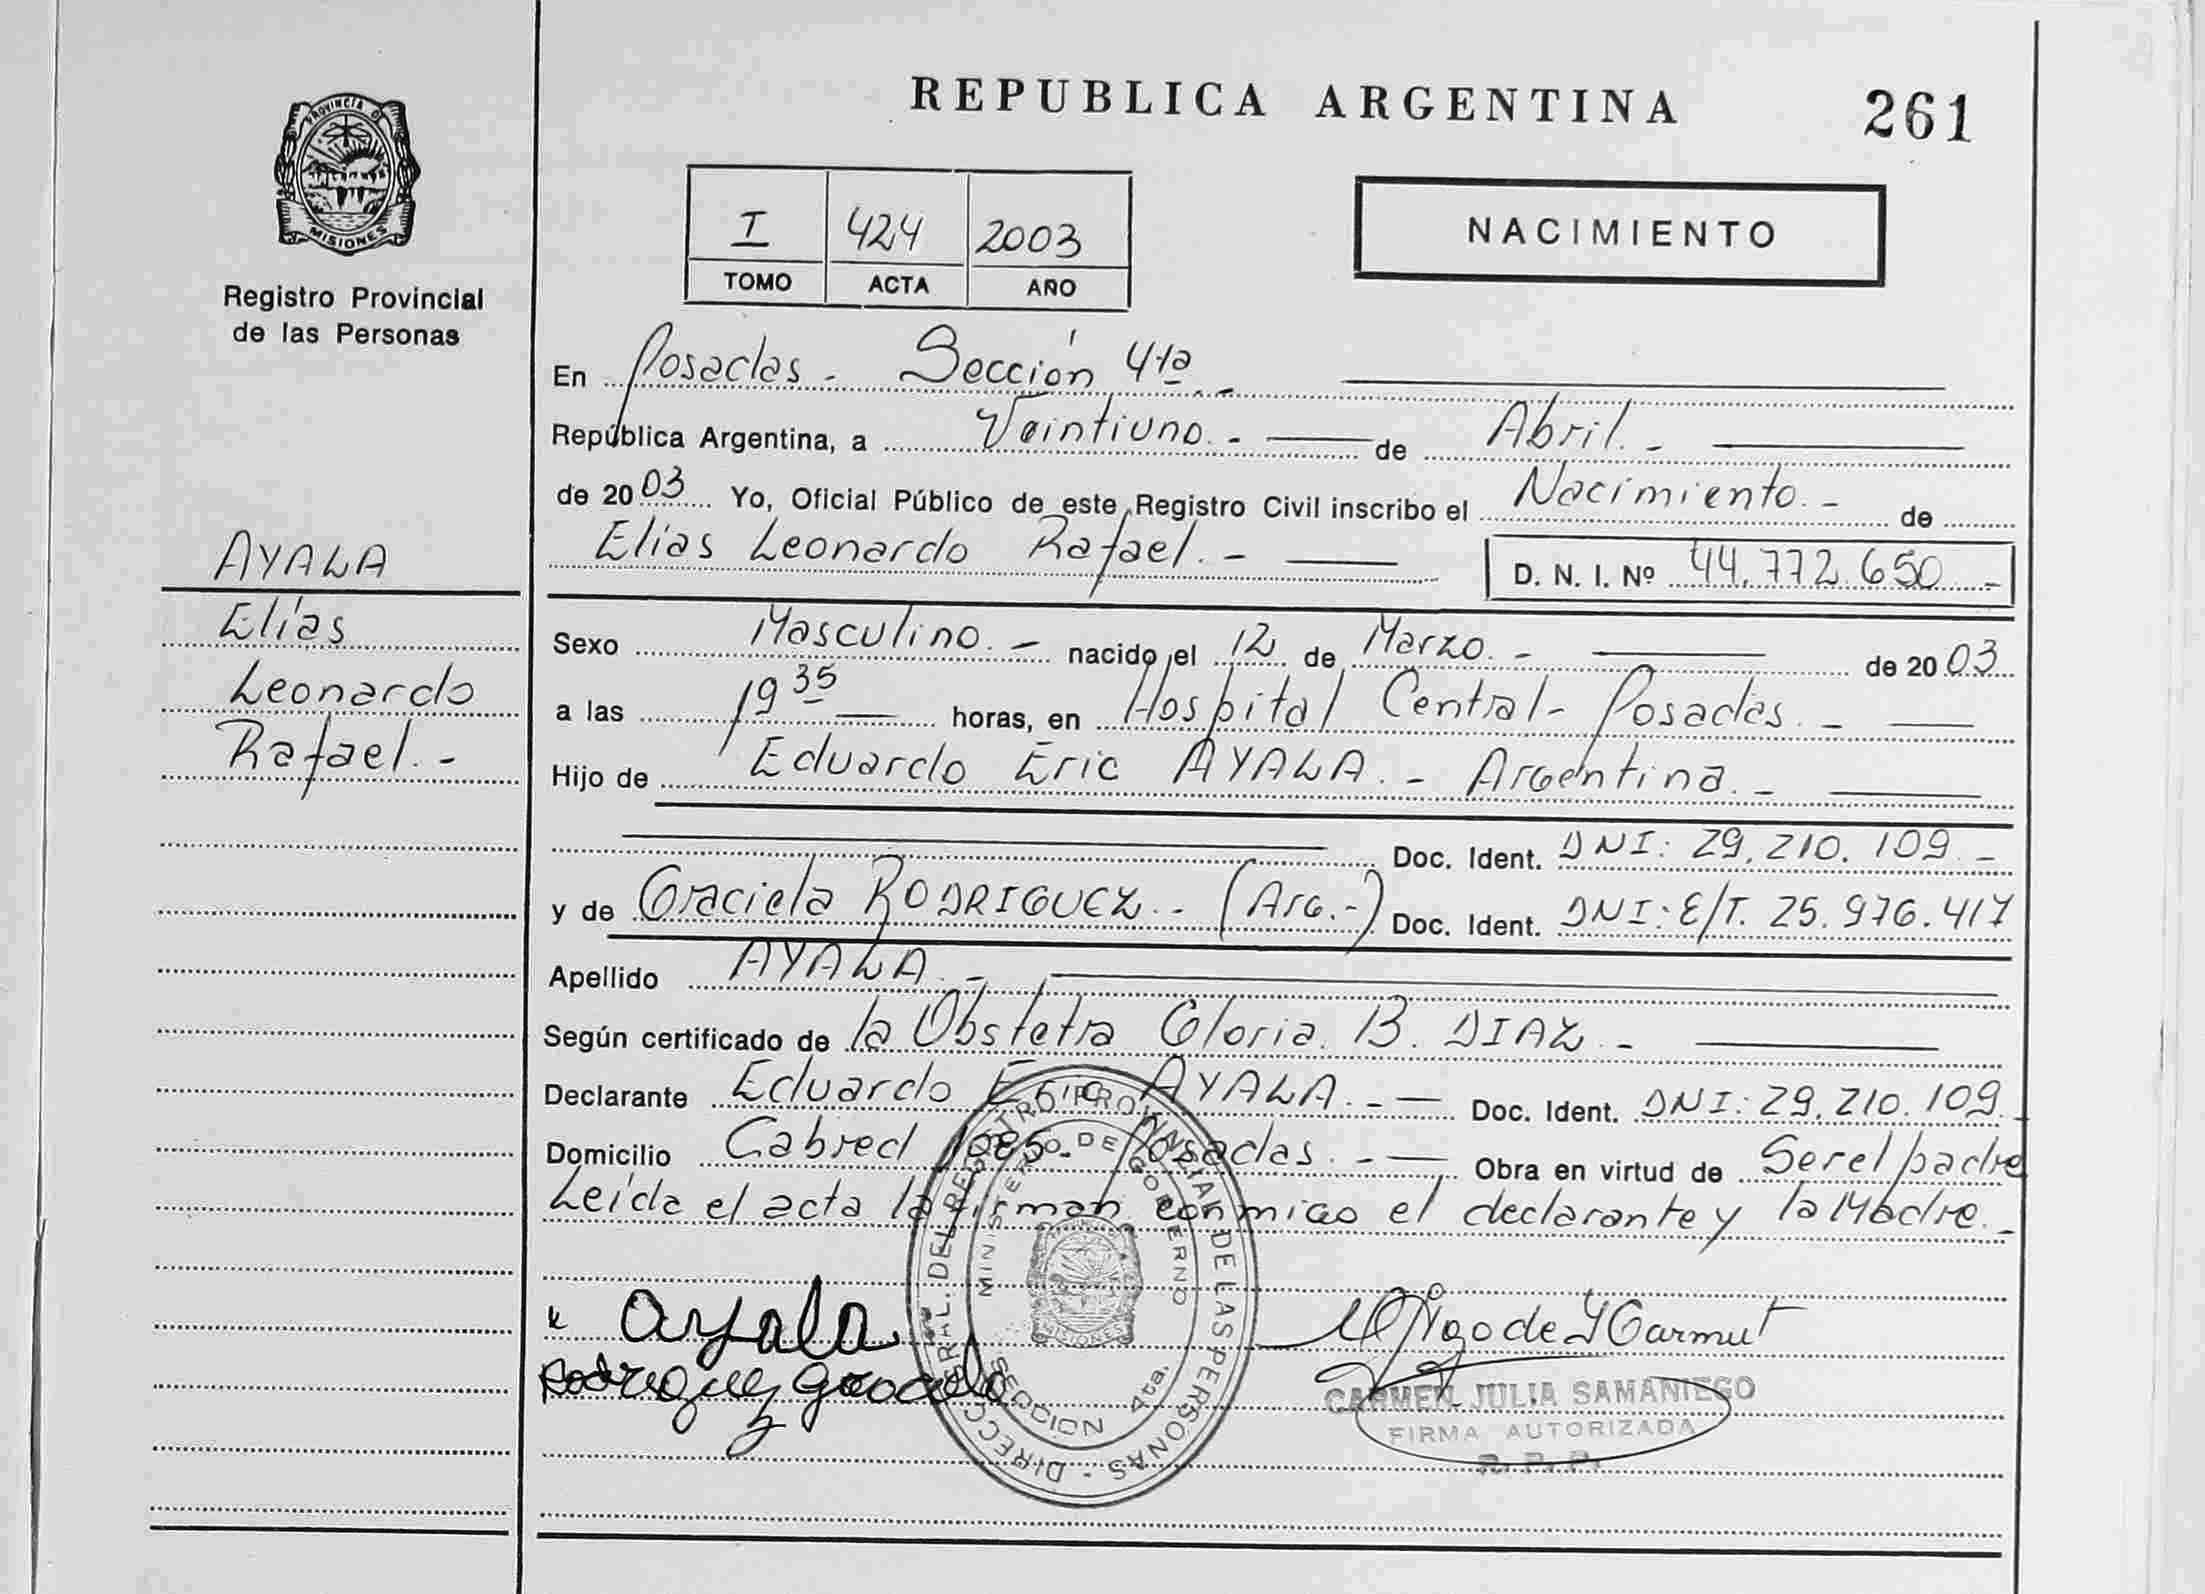 REPUBLICA ARGENTINA
261
PROVINCIA D
MISIONES
Registro Provincial
de las Personas
I 424 2003
TOMO ACTA AÑO
NACIMIENTO
En Posadas - Sección 4ta. -
República Argentina, a Veintiuno. - de Abril. -
de 2003 Yo, Oficial Público de este Registro Civil inscribo el Nacimiento. - de
Elías Leonardo Rafael. - D. N. I. Nº 44.772.650 -
AYALA
Elías
Leonardo
Rafael. -
Sexo Masculino. - nacido el 12 de Marzo. - de 2003
a las 19 35 horas, en Hospital Central - Posadas. -
Hijo de Eduardo Eric AYALA. - Argentina. -
Doc. Ident. DNI: 29.210.109 -
y de Graciela RODRIGUEZ. - (Arg. -) Doc. Ident. DNI: E/T. 25.976.417
Apellido AYALA. -
Según certificado de la Obstetra Gloria. B. DIAZ. -
Declarante Eduardo Eric AYALA. - Doc. Ident. DNI: 29.210.109. -
Domicilio Cabred - Posadas. - Obra en virtud de Ser el padre
Leída el acta la firman conmigo el declarante y la Madre. -
Ayala
Rodriguez Graciela
DIRECC. GRAL. DEL REGISTRO PROVINCIAL DE LAS PERSONAS -
MINISTERIO DE GOBIERNO
MISIONES
SECCION 4ta.
CARMEN JULIA SAMANIEGO
FIRMA AUTORIZADA
R. P. P.